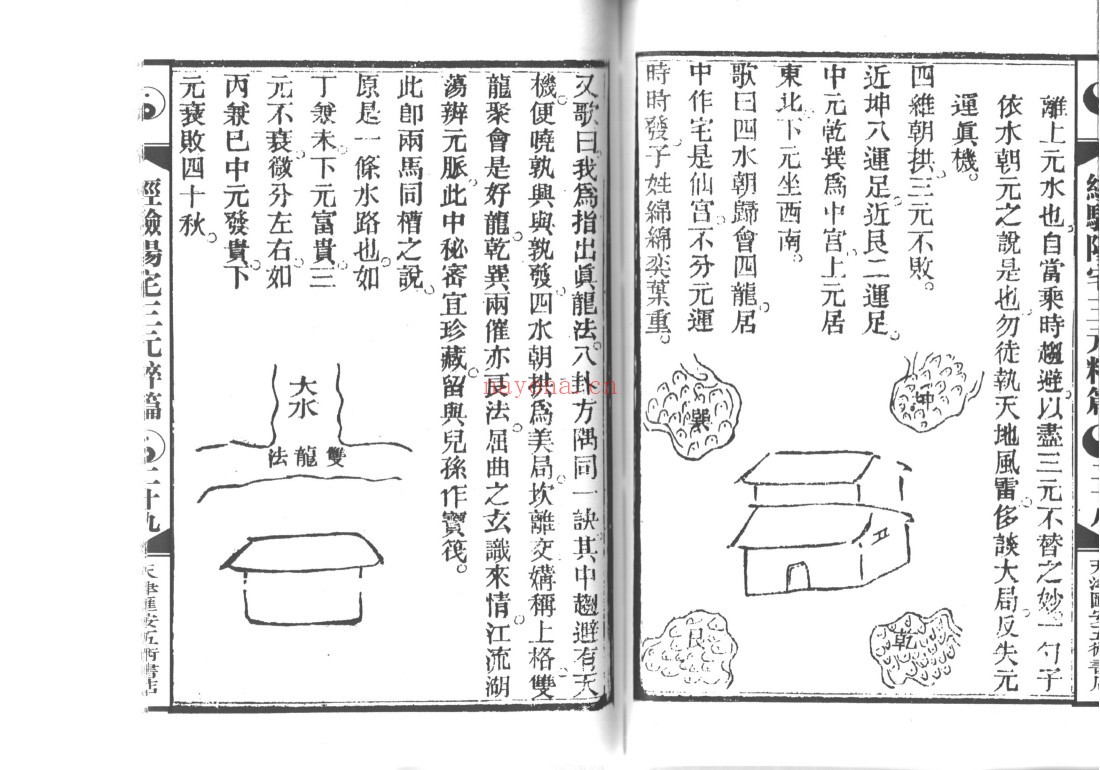 離上元水也。自當乘時趨避。以盡三元不替之妙。一勺子
依水朝元之說是也。勿徒執天地風雷。侈談大局。反失元
運眞機。
四維朝拱。三元不敗。
近坤八運足。近艮二運足。
中元乾巽爲中宮。上元居
東北。下元坐西南。
歌曰。四水朝歸會四龍。居
中作宅是仙宮。不分元運
時時發。子姓綿綿奕葉重。
坤
巽
乾
艮
二十八
又歌曰。我爲指出眞龍法。八卦方隅同一訣。其中趨避有天
機。便曉孰興與孰發。四水朝拱爲美局。坎離交媾稱上格。雙
龍聚會是好龍。乾巽兩催亦良法。屈曲之玄識來情。江流湖
蕩辨元脈。此中秘密宜珍藏。留與兒孫作寶筏。
此即兩馬同槽之說。
原是一條水路也。如
丁兼未。下元富貴。三
元不衰。微分左右。如
丙兼巳。中元發貴。下
元衰敗四十秋。
大水
雙龍法
經驗陽宅三元粹篇
二十九
nayona.cn